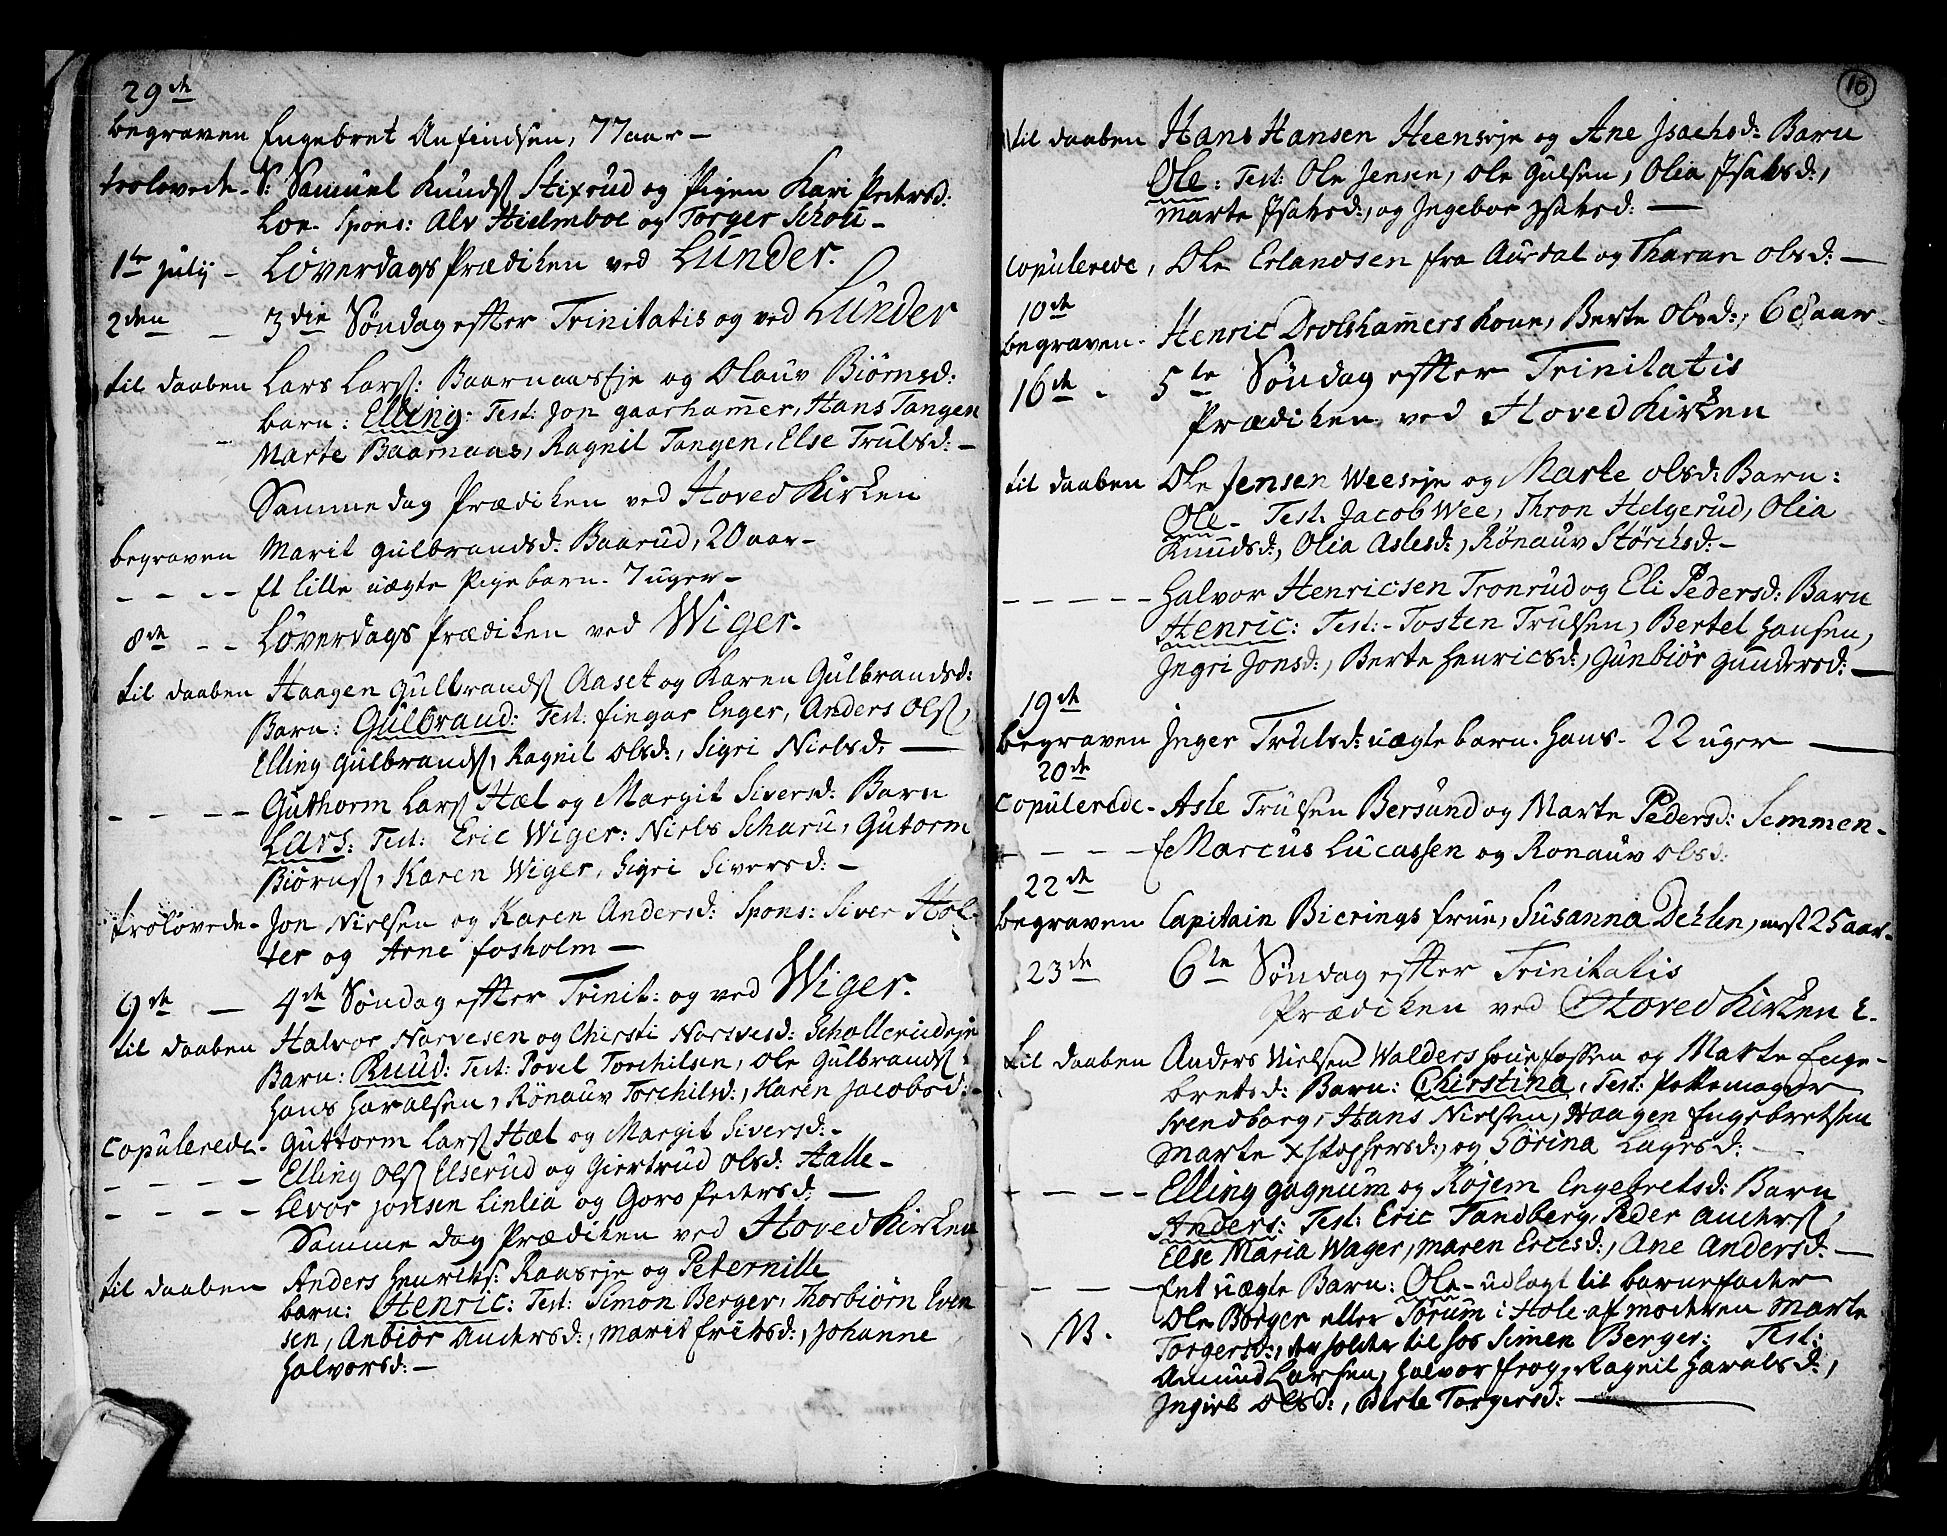 29de
begraven Engebret Anfindsen, 77 aar –
trolovede – S: Samuel Knuds. Stixrud og Pigen Kari Pedersd:
Loe. Spons: Alv Hielmboe og Torger Schou –
1te july – Løverdags Prædiken ved Lunder.
2den – 3die Søndag effter Trinitatis og ved Lunder
til daaben Lars Lars: Baarnaas Eje og Olauv Biørnsd:
barn: Elling: Test: Jon gaarhammer, Hans Tangen
Marte Baarnaas, Ragnil Tangen, Else Trulsd: –
Samme dag Prædiken ved Hoved Kirken
begraven Marit gulbrandsd: Baarud, 20 aar –
– – – – Et lille uægte Pigebarn. 7 uger –
8de – – Løverdags Prædiken ved Wiger.
til daaben Haagen Gulbrands. Aaset og Karen Gulbrandsd:
Barn: Gulbrand: Test: fingar Enger, Anders Ols.,
Elling gulbrands., Ragnil Olsd:, Sigri Nielsd: —
– – – – Guthorm Lars. Hæl og Margit Siversd: Barn
Lars: Test: Eric Wiger: Niels Scharu, Gutorm
Biørns., Karen Wiger, Sigri Siversd: –
troløvede – Jon Nielsen og Karen Andersd: Spons: Siver Hol-
ter og Arne fosholm —
9de — 4de Søndag effter Trinit: og ved Wiger.
til daaben Halvor Narvesen og Chirsti Narvesd: Schollerudeje
Barn: Knud: Test: Povel Torchilsen, Ole Gulbrands.
Hans Haralsen, Rønauv Torchilsd:, Karen Jacobsd: –
Copulerede – Guttorm Lars. Hæl og Margit Siversd: –
– – – – Elling Ols. Elserud og Giertrud Olsd: Halle –
– – – – Levor Jonsen Linlia og Goro Pedersd: —
Samme dag Prædiken ved Hoved Kirken
til daaben Anders Henriks: Raaseje og Peternille
barn: Henric: Test: Simon Berger, Thorbiørn Even
sen, Anbiør Andersd:, Marit friksd:, Johanne
Halvorsd: –
10
til daaben Hans Hansen Heenseje og Ane Isachsd: Barn
Ole: Test: Ole Jensen, Ole Gulsen, Olia Isaksd:,
Marte Isaksd:, og Ingebor Isaksd: —
Copulerede, Ole Erlandsen fra Aurdal og Tharan Olsd: —
10de
begraven – Henric Drolshammers Kone, Berte Olsd:, 68 aar –
16de – 5te Søndag effter Trinitatis
Prædiken ved Hoved Kirken
til daaben Ole Jensen Weeseje og Marte Olsd: Barn:
Ole – Test: Jacob Wee, Thron Helgerud, Olia
Knudsd:, Olia Aslesd:, Rønauv Størchsd: –
– – – – – Halvor Henricsen Tronrud og Eli Pedersd: Barn
Henric: Test: – Tosten Trulsen, Bertel Hansen,
Ingri Jonsd:, Berte Henricsd:, Gunbiør Gundersd: —
19de
begraven Inger Trulsd: uægte barn. Hans – 22 uger —
20de
Copulerede – Asle Trulsen Bersund og Marte Pedersd: Semmen –
– – – – Marcus Lucassen og Ronauv Olsd:
22de
begraven Capitain Bierings frue, Susanna Dehlen, næst 25 aar –
23de 6te Søndag effter Trinitatis
Prædiken ved Hoved Kirken
til daaben Anders Nielsen Walders Hønefossen og Marte Enge-
bretsd: Barn: Chirstina, Test: Pottemager
Svendborg, Hans Nielsen, Haagen Engebretsen
Marte Xstophersd:, og Sørina Lagesd: –
– – – – Elling gagnum og Røjem Engebretsd: Barn
Anders: Test: Eric Tandberg, Peder Anders.,
Else Maria Wager, Maren Ericsd:, Ane Andersd: —
– – – – Eet uægte Barn: Ole – udlagt til barnefader
NB. Ole Borger eller Sorum i Hole af moderen Marte
Torgersd:, der holder til hos Simen Berger; Test:
Amund Larsen, Halvor frog, Ragnil Haralsd:,
Ingieb Olsd:, Berte Torgersd: —